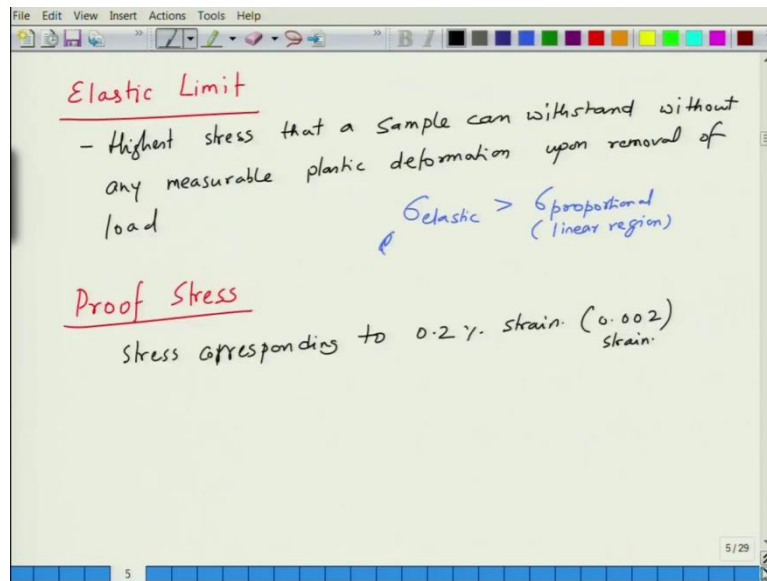 File Edit View Insert Actions Tools Help
Elastic Limit
- Highest stress that a sample can withstand without
any measurable plastic deformation upon removal of
load
σelastic > σproportional
(linear region)
Proof Stress
stress corresponding to 0.2 %. strain. (0.002)
strain.
5/29
5